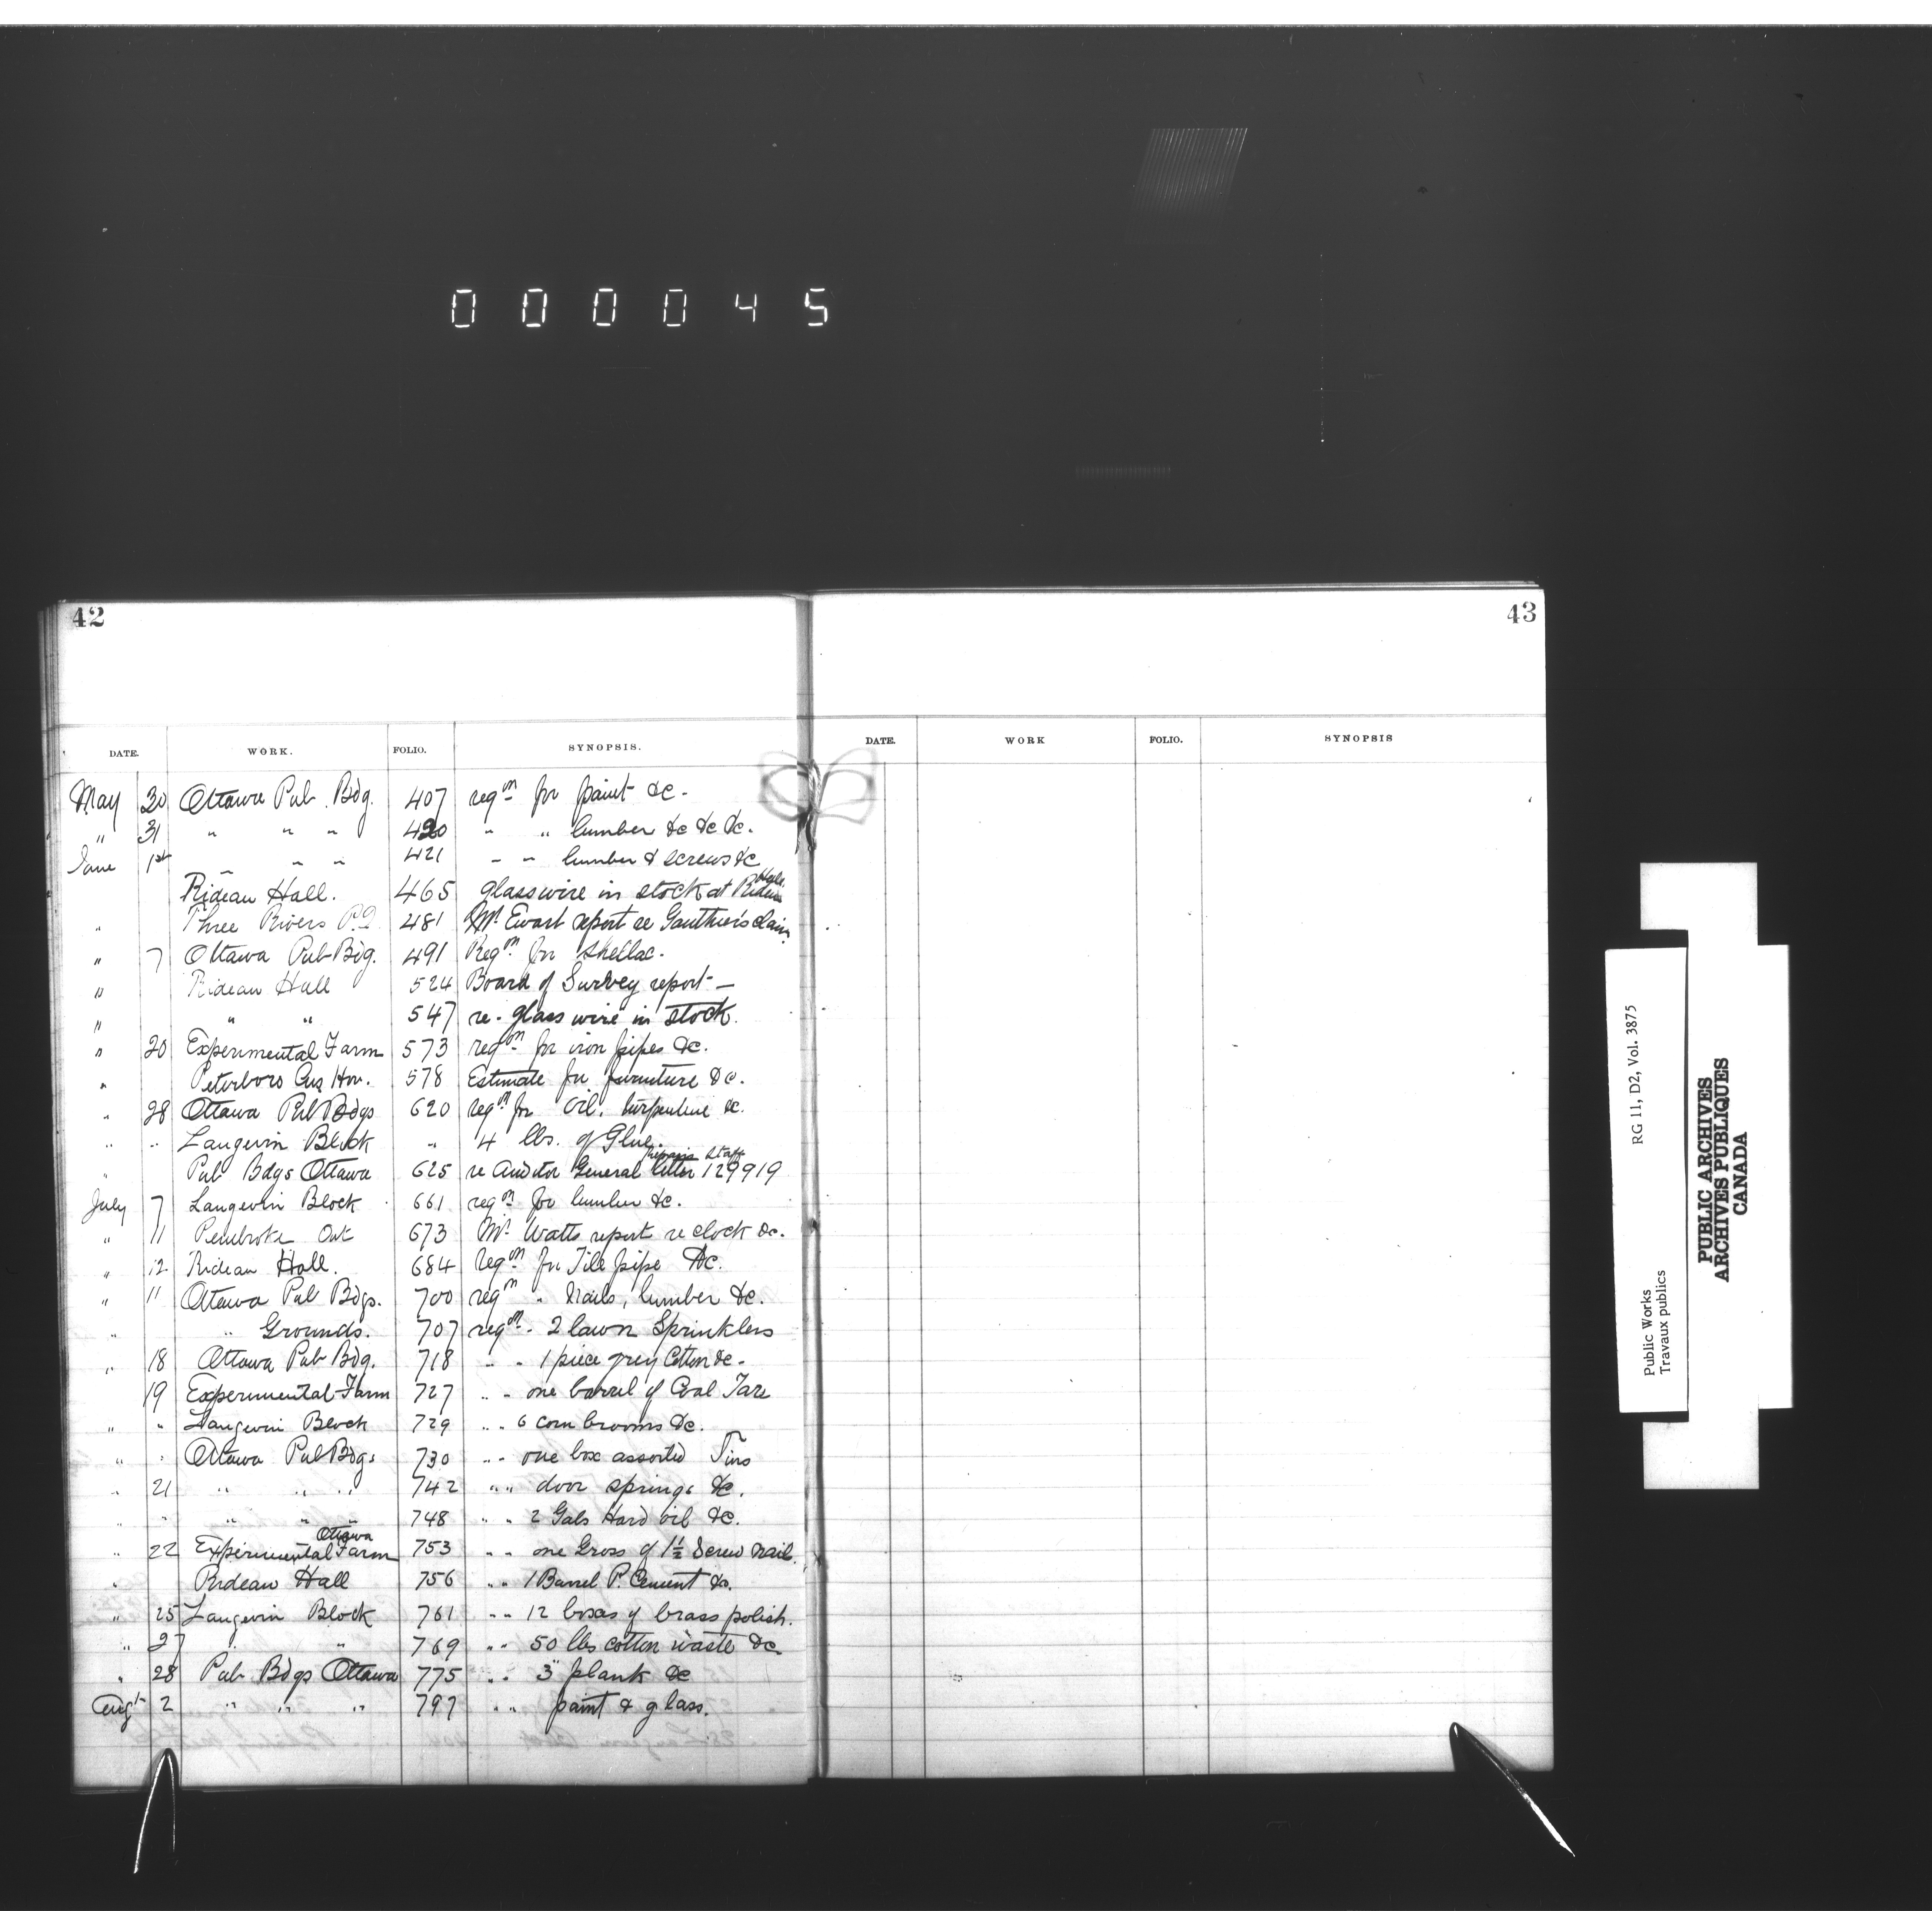 000045
42
DATE. WORK. FOLIO. SYNOPSIS.
May 30 Ottawa Pub. Bdg. 407 reqn for paint &c -
" 31 " " " 420 " " lumber &c &c &c.
June 1st " " " 421 " " lumber & screws &c
Rideau Hall. 465 glass wire in stock at Rideau Hall.
" Three Rivers P.O. 481 Mr. Ewart report re Gauthier's claim.
" 7 Ottawa Pub Bdg. 491 Reqn for Shellac.
" Rideau Hall 524 Board of Survey report —
" " " 547 re. glass wire in stock.
" 20 Experimental Farm 573 reqn for iron pipes &c.
" Peterboro Cus Hou. 578 Estimate for furniture &c.
" 28 Ottawa Pub Bdgs 620 reqn for Oil, turpentine &c.
" " Langevin Block " 4 lbs. of Glue.
" Pub Bdgs Ottawa 625 re Auditor General letter 129919 repairs Staff
July 7 Langevin Block 661 reqn for lumber &c.
" 11 Pembroke Ont 673 Mr. Watts report re clock &c.
" 12 Rideau Hall. 684 Reqn for Tile pipe &c.
" 11 Ottawa Pub Bdgs. 700 reqn " Nails, lumber &c.
" " Grounds. 707 reqn - 2 lawn Sprinklers
" 18 Ottawa Pub Bdg. 718 " " 1 piece grey Cotton &c -
19 Experimental Farm 727 " " one barrel of Coal Tare
" " Langevin Block 729 " " 6 corn brooms &c.
" " Ottawa Pub Bdgs 730 " " one box assorted Tins
" 21 " " " 742 " " door springs &c.
" " " " " 748 " " 2 Gals Hard oil &c.
" 22 Experimental Farm Ottawa 753 " " one Gross of 1½ Screw nails.
" Rideau Hall 756 " " 1 Barrel P. Cement &c.
" 25 Langevin Block 761 " " 12 boxes of brass polish.
" 27 " " 769 " " 50 lbs cotton waste &c.
" 28 Pub Bdgs Ottawa 775 " " 3" plank &c
Augt 2 " " " 797 " " paint & glass.
43
DATE. WORK FOLIO. SYNOPSIS
Public Works RG 11, D2, Vol. 3875
Travaux publics
PUBLIC ARCHIVES
ARCHIVES PUBLIQUES
CANADA